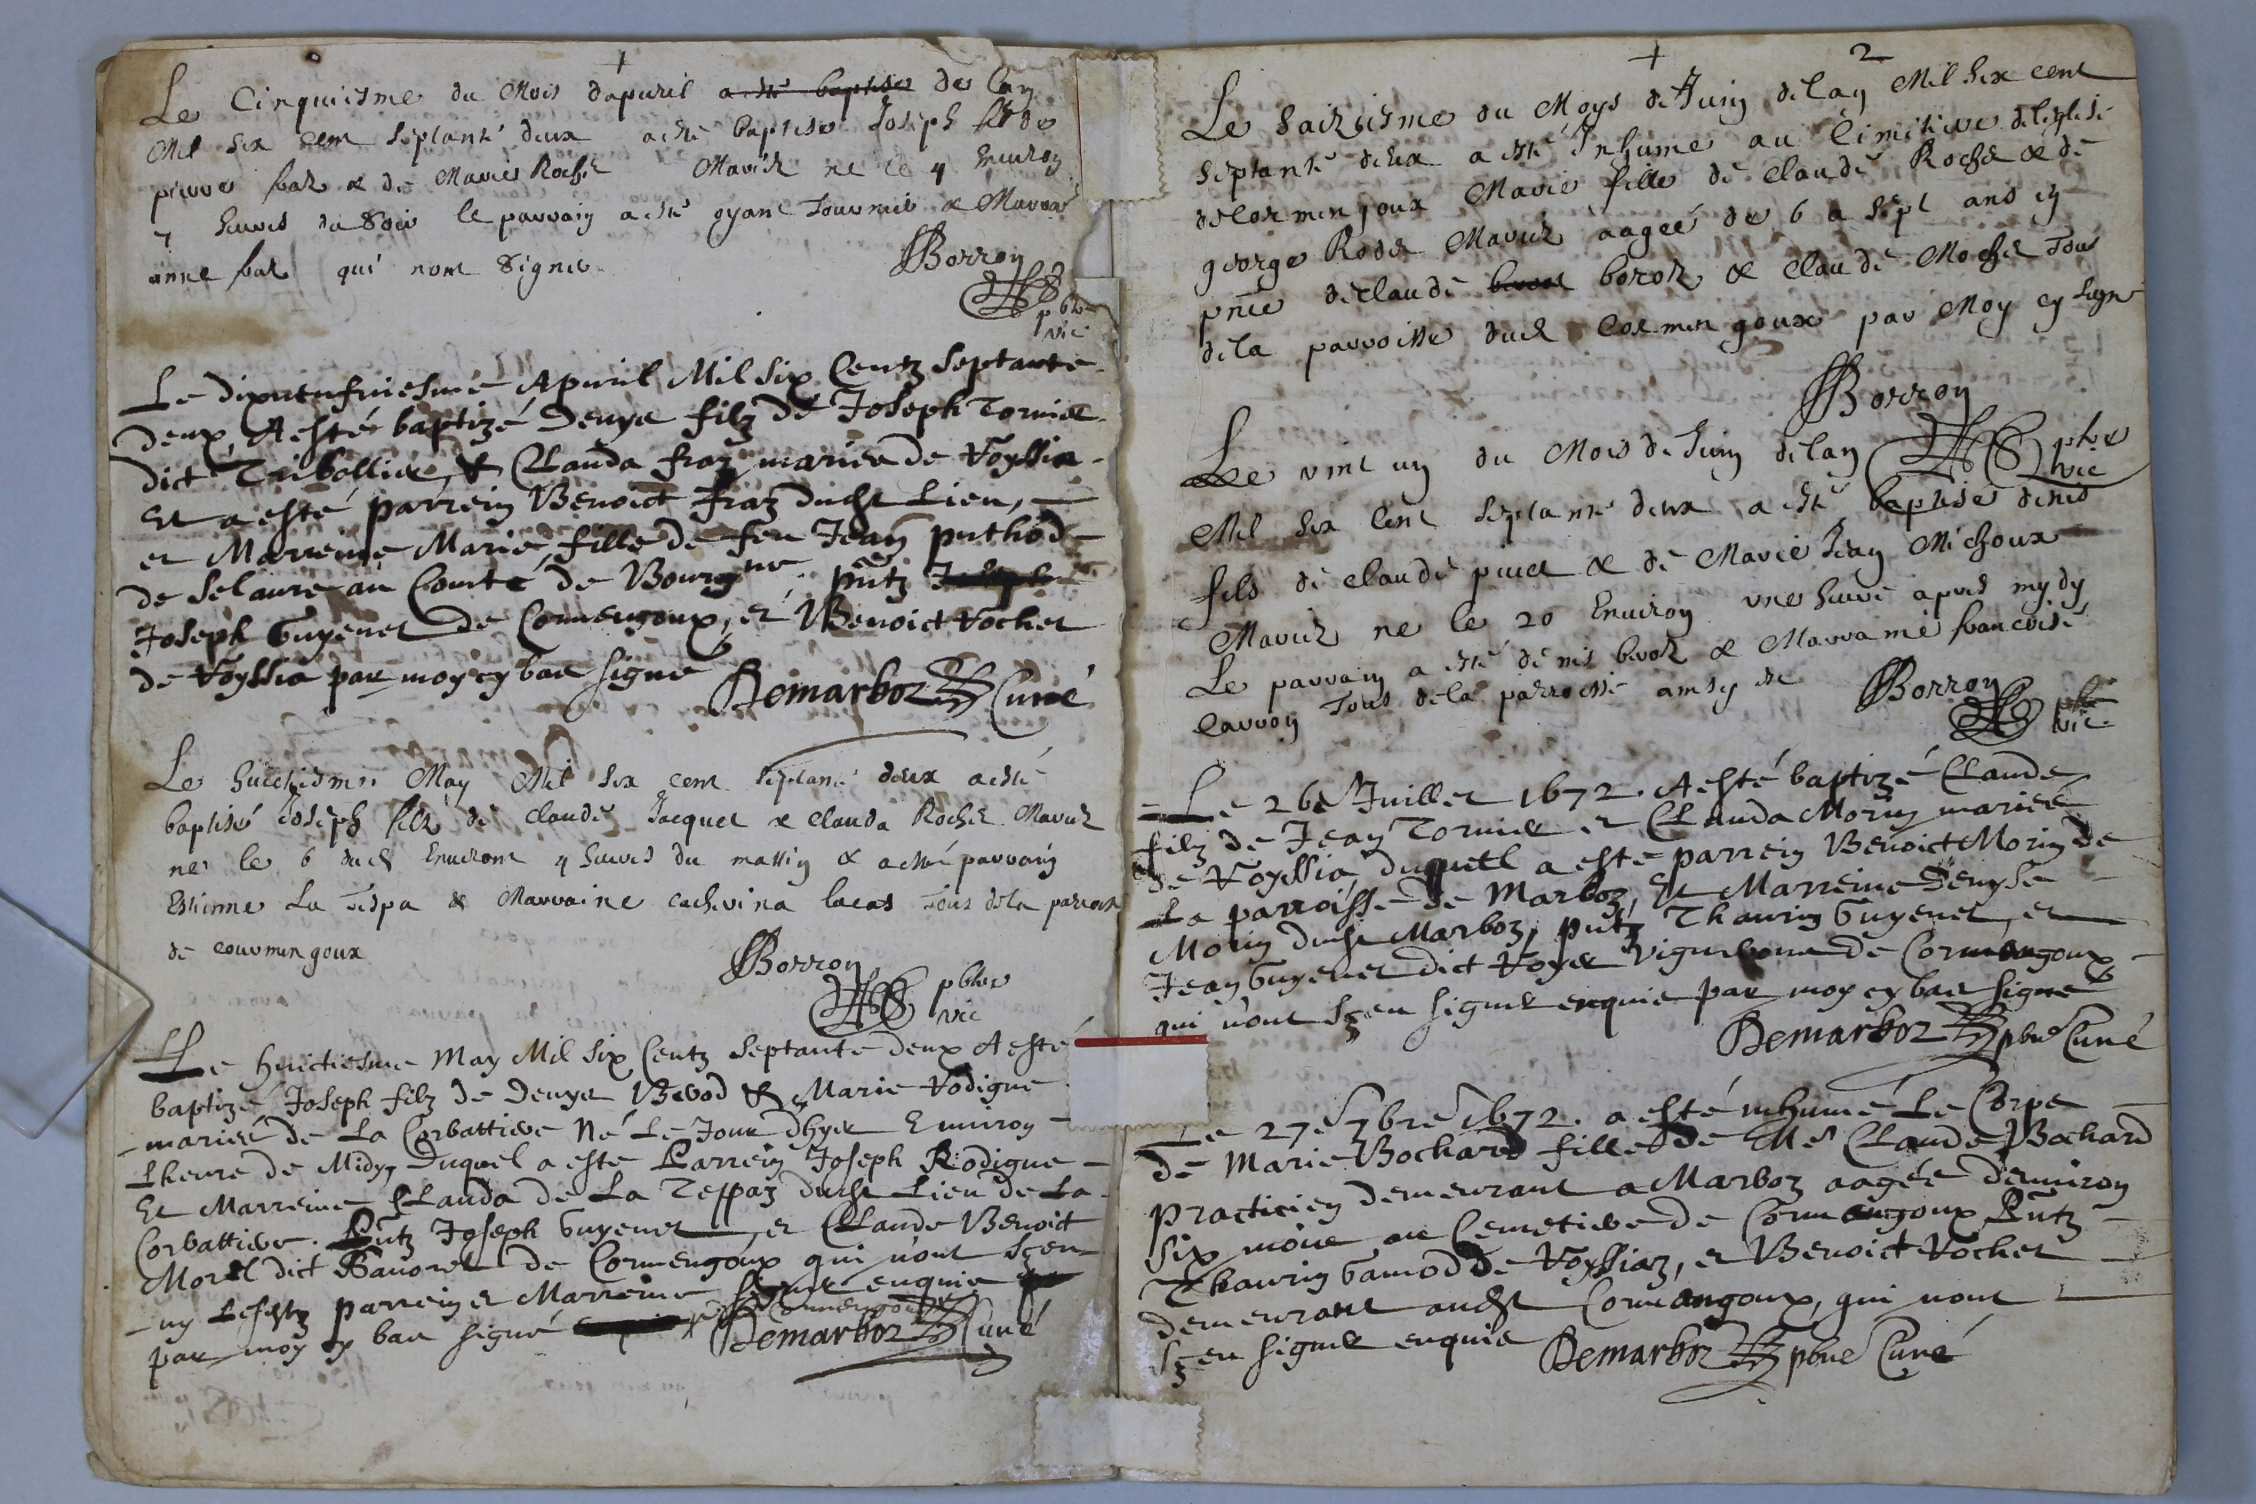 Le Cinquiesme du Mois dapuril a esté baptise de lan
Mil six cent septante deux a esté baptise Joseph fils de
pierre fraz & de Marie Roche Mariez ne le 4 Enuiron
7 heures du Soir le parrain a esté oyant Tournier & Marrai
anne fraz qui nont signe
Borron
pbtre
vic
Le dixneufuiesme Apuril Mil Six Centz Septante
deux, A esté baptizé Denys filz de Joseph Tornier
dict Triballier, & Clauda fraz mariez de Voyssia
Et a esté parrein Benoict fraz dudt Lieu,
et Marreine Marie fille de feu Jean puthod
de Selaure au Comté de Bourgne. pntz
Joseph Guyenet de Cormengoux, et Benoict Vochet
de Voyssia par moy cy bas signe
Demarboz Curé
Le huictiesme May Mil six cent septante deux a esté
baptisé Joseph filz de Claude Jacquet & Clauda Rochet Mariez
ne le 6 dudt Enuiront 4 heures du mattin & a esté parrain
Estienne La Tespa & Marraine catherina lacas Tous de la parroisse
de courmengoux
Borron
pbtre
vic
Le huictiesme May Mil six Centz Septante deux A esté
baptizé Joseph filz de Denys Bevod & Marie Rodigue
mariez de La Corbattiere Né Le Jour dhyer Enuiron
Lheure de Midy, Duquel a esté Parrein Joseph Rodigue
Et Marreine Clauda de La Teppaz dudt Lieu de La
Corbattiere. Pntz Joseph Guyenet, et Claude Benoit
Morel dict Bauorel de Cormengoux qui n'ont sceu
ny Lesdtz parrein et Marreine signer enquis
par moy cy bas signé
Demarboz Curé
2
Le saiziesme du Moys de Juin de lan Mil six cent
septante deux a esté Inhume au Cimitiere de leglise
de Cormengoux Marie fille de claude Rochet & de
george Rodet Mariez aagée de 6 a sept ans en
pnce de claude boroz & Claude Mochet Tous
de la parroisse dudt Cormengoux par Moy cy signe
Borron
pbtre
vic
Le vint un du Mois de Juin de lan
Mil six Cent septante deux a esté baptise denis
fils de claude piuet & de Marie Jean Michoux
Mariez ne le 20 Enuiron vne heure apres mydy
Le parrain a esté denis beroz & Marraine francoise
Carron Tous de la parroisse
Borron
pbtre
vic
Le 26e Juillet 1672. A esté baptizé Claude
filz de Jean Tornier et Clauda Morin mariez
de Voyssia, duquell a esté parrein Benoict Morin de
La parroisse de Marboz, Et Marreine Denyse
Morin dudt Marboz, pntz Thaurin Guyenet, et
Jean Guyenet dict Voyer Vigneron de Cormengoux
qui n'ont sceu signer enquis par moy cy bas signé
Demarboz pbre Curé
Le 27e 7bre 1672. a esté inhumé Le Corps
de Marie Bochard fille de Me Claude Bochard
practicien demeurant a Marboz aagée denuiron
six mois au Cemetiere de Cormengoux Pntz
Thaurin Gamod de Voyssiaz, et Benoict Vochet
demeurant audt Cormengoux, qui nont
sceu signer enquis
Demarboz pbre Curé